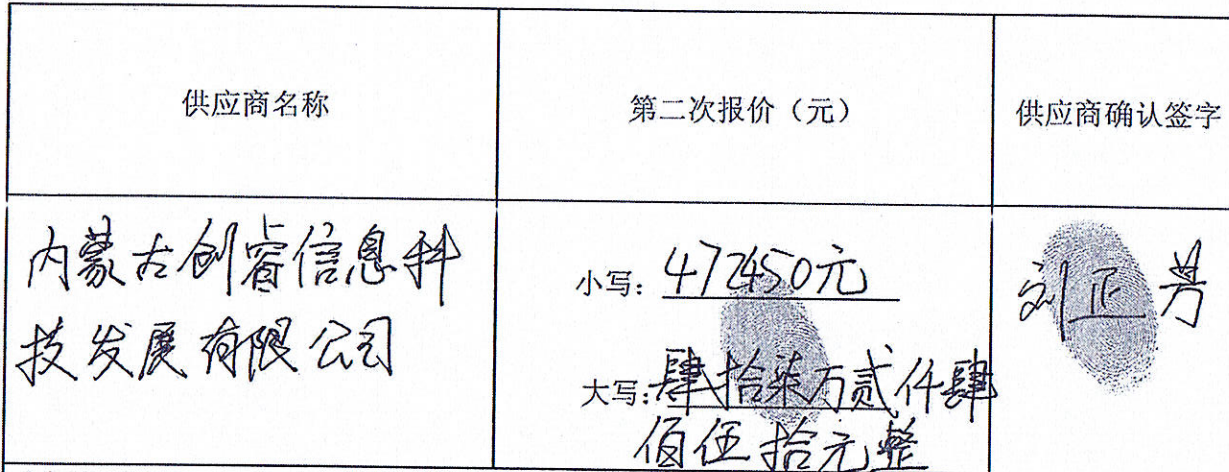 供应商名称
第二次报价（元）
供应商确认签字
内蒙古创睿信息科
技发展有限公司
小写：472450元
大写：肆拾柒万贰仟肆
佰伍拾元整
刘正芳